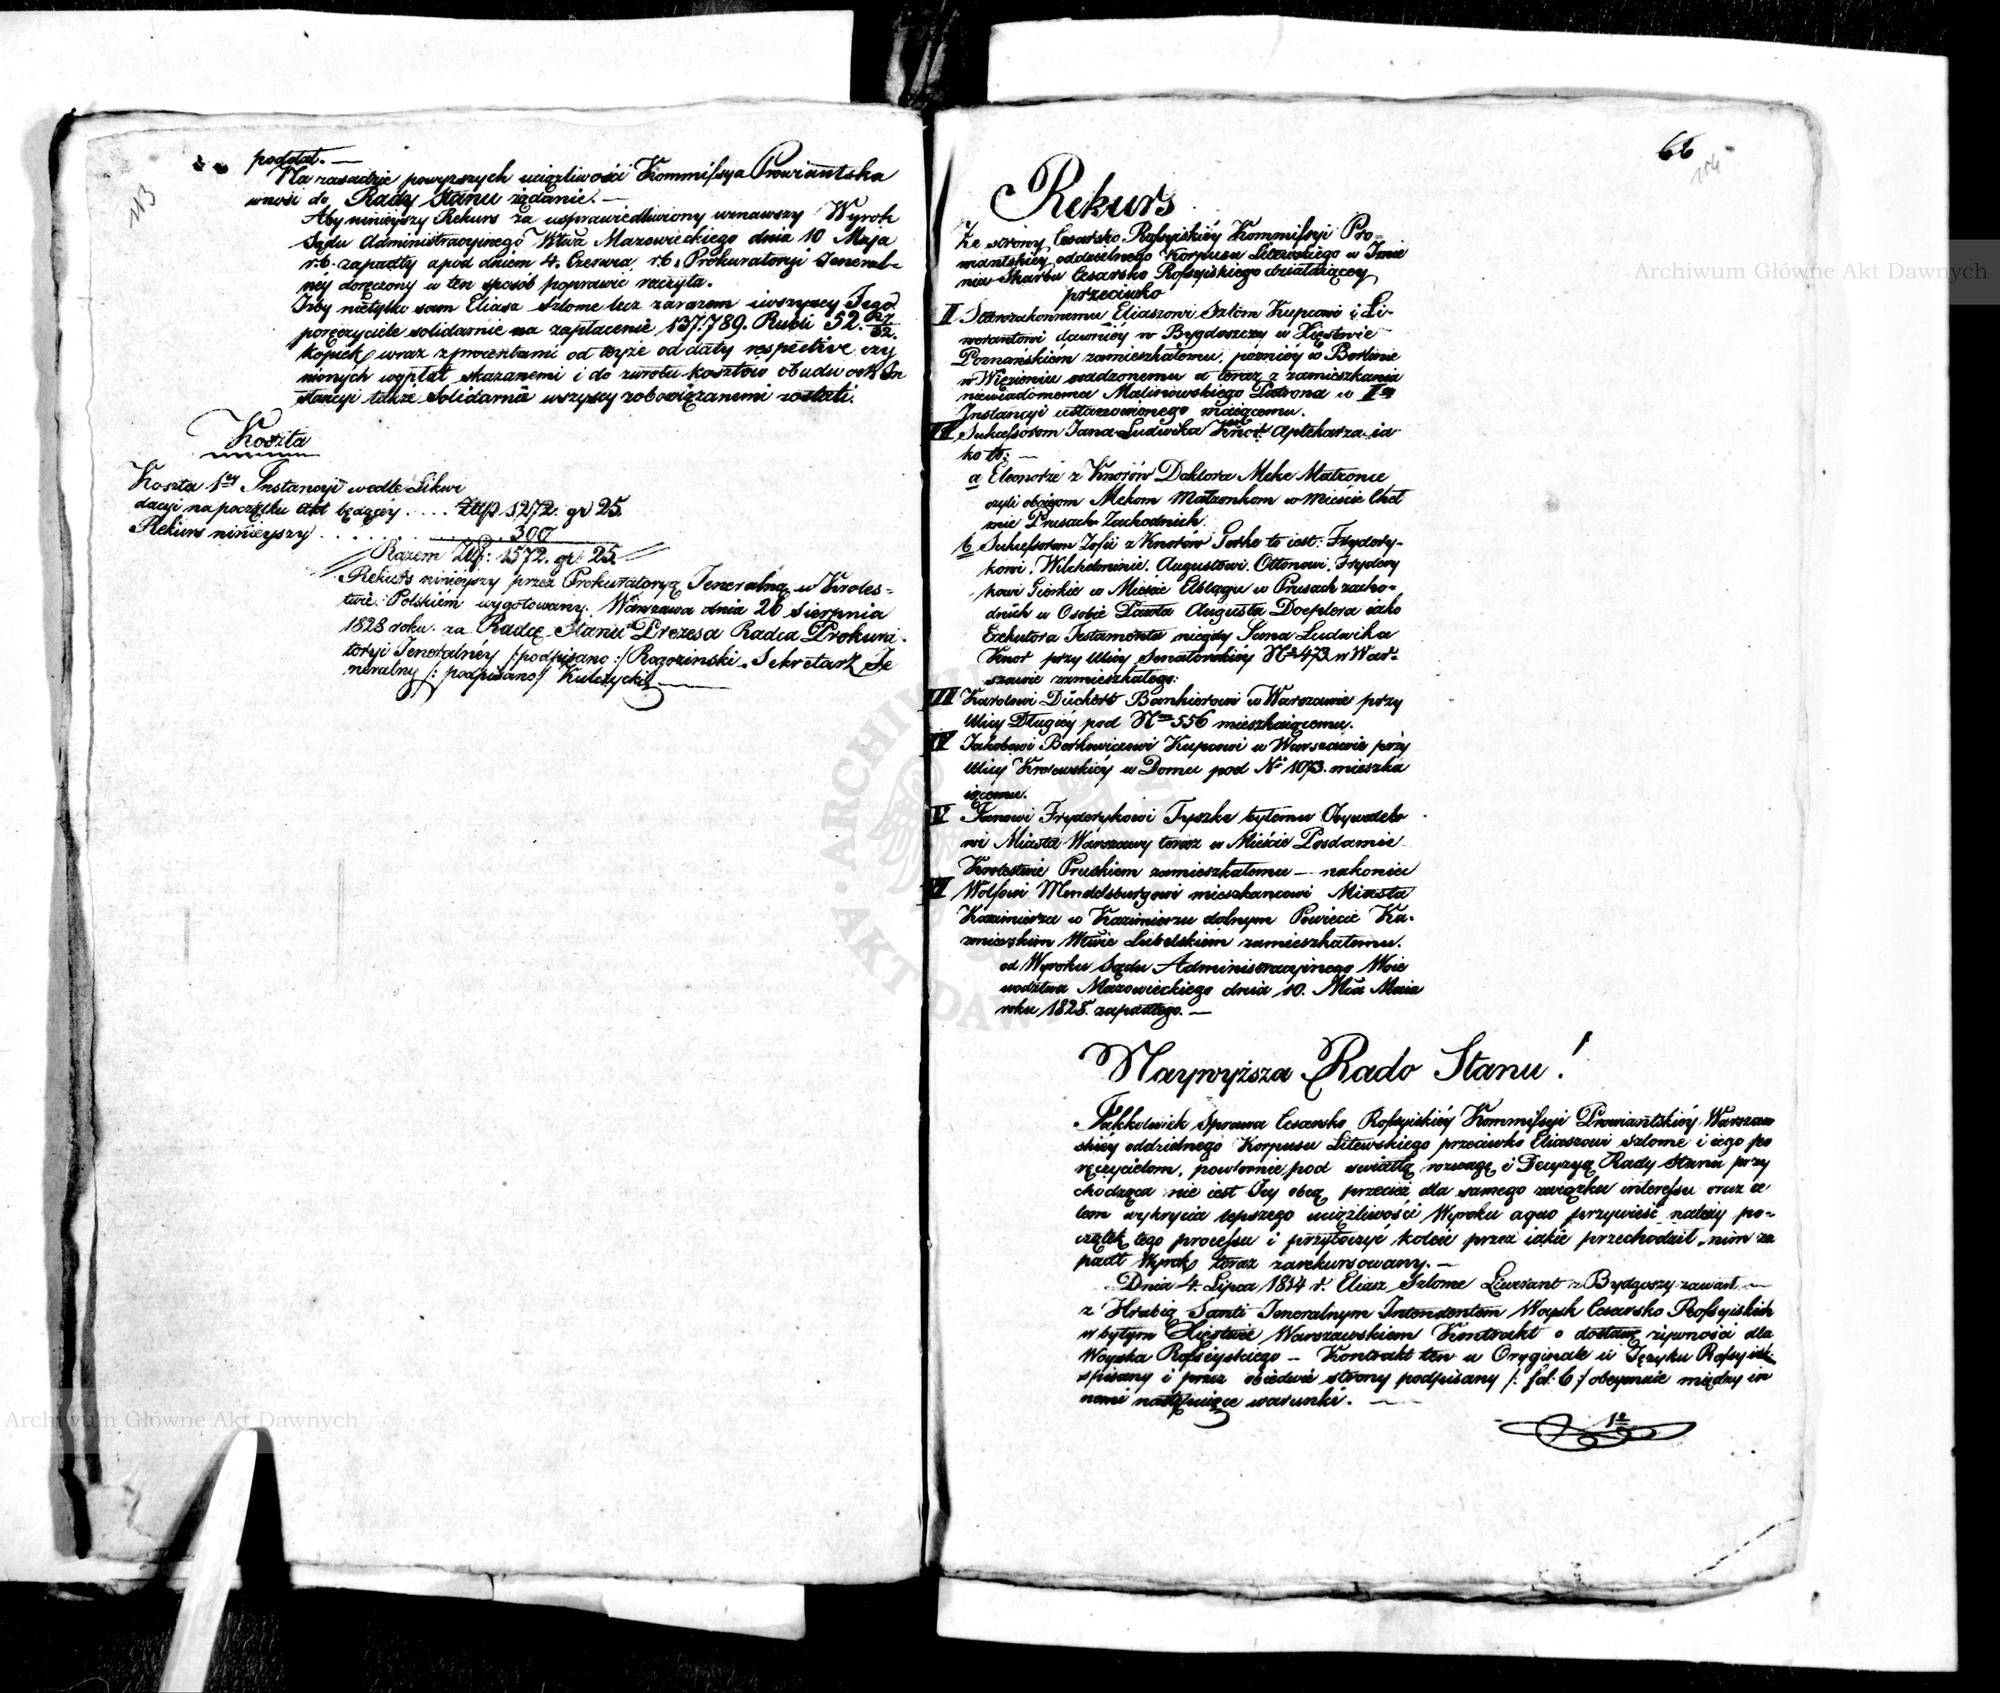 113
poddał. —
Na zasadzie powyższych uciążliwości Kommissya Prowiantska
wnosi do Rady Stanu żądanie. —
Aby ninieyszy Rekurs za usprawiedliwiony uznawszy Wyrok
Sądu Administracyinego Wtwa Mazowieckiego dnia 10 Maja
r. b. zapadły a pod dniem 4. Czerwca r. b. Prokuratoryi Jeneral-
ney doręczony w ten sposób poprawić raczyła.
Iżby nietylko sam Eliasz Szlome lecz zarazem wszyscy Jego
poręczyciele solidarnie na zapłacenie 137.789. Rubli 52.
kopiek wraz z procentami od teyże od daty respective czy
nionych wypłat skazanemi i do zwrotu kosztów obudwóch In
stancyi także Solidarnie wszyscy zobowiązanemi zostali.
Koszta
Koszta 1ey Instancyi wedle Likwi
dacyi na początku akt będącey . . . . . Złtp 1272. gr 25
Rekurs ninieyszy . . . . . . . . . 300
Razem Złp: 1572. gr 25.
Rekurs ninieyszy przez Prokuratoryą Jeneralną w Kroles-
twie Polskiem wygotowany. Warszawa dnia 26 Sierpnia
1828 roku. za Radcę Stanu Prezesa Radca Prokura
toryi Jeneralney /:podpisano:/ Rogoziński. Sekretarz Je
neralny /: podpisano/ Kulczycki
66
114
Rekurs
Ze strony Cesarsko Rossyiskiéy Kommissyi Pro-
wiantskiéy oddzielnego Korpusu Litewskiego w Imie
niu Skarbu Cesarsko Rossyiskiego działaiącey
przeciwko
I Starozakonnemu Eliaszowi Szlom Kupcowi i Li-
werantowi dawniéy w Bydgoszczy w Xięstwie
Poznańskiem zamieszkałemu, późniéy w Berlinie
w Więzieniu osadzonemu a teraz z zamieszkania
niewiadomemu Malinowskiego Patrona w Iey
Instancyi ustanowionego maiącemu.
II Sukcessorom Jana Ludwika Knor Aptekarza ia-
ko to: —
a Eleonorze z Knorów Doktora Meke Małżonce,
czyli oboygom Mekom Małżonkom w Mieście Cheł
mnie Prusach Zachodnich.
b Sukcessorom Zofii z Knorów Gorke to iest: Frydery-
kowi, Wilhelminie, Augustowi, Ottonowi, Frydery
kowi Görke w Mieście Elblągu w Prusach zacho-
dnich w Osobie Pawła Augusta Doeplera iako
Exekutora Testamentu niegdy Jana Ludwika
Knor przy Ulicy Senatorskiéy No 473 w War-
szawie zamieszkałego:
III Karolowi Dückert Bankierowi w Warszawie przy
Ulicy Długiéy pod Nem 556 mieszkaiącemu.
IV Jakóbowi Berkowiczowi Kupcowi w Warszawie przy
Ulicy Krolewskiéy w Domu pod No 1073. mieszka
iącemu.
V Janowi Fryderykowi Tyszke byłemu Obywatelo
wi Miasta Warszawy teraz w Mieście Posdamie
Krolestwie Pruskiem zamieszkałemu — nakoniec
VI Wolfowi Mendelsburgowi mieszkancowi Miasta
Kazimierza w Kazimierzu dolnym Powiecie Ka-
zmierskim Wtwie Lubelskiem zamieszkałemu.
od Wyroku Sądu Administracyinego Woie
wodztwa Mazowieckiego dnia 10. Mca Maia
roku 1828. zapadłego. —
Naywyższa Rado Stanu!
Jakkolwiek Sprawa Cesarsko Rossyiskiéy Kommissyi Prowiantskiéy Warszaw
skiéy oddzielnego Korpusu Litewskiego przeciwko Eliaszowi Szlome i iego po
ręczycielom, powtornie pod swiatłą rozwagę i Decyzyą Rady Stanu przy
chodząca nie iest Jey obcą, przecież dla samego związku interessu oraz ce
lem wykrycia lepszego uciążliwości Wyroku a quo przywieść należy po-
czątek tego processu i przytoczyć koleie przez iakie przechodził, nim za
padł Wyrok teraz zarekursowany. —
Dnia 4. Lipca 1814 r. Eliasz Szlome Liwerant z Bydgoszczy zawarł —
z Hrabią Santi Jeneralnym Intendentem Woysk Cesarsko Rossyiskich
w byłym Xięstwie Warszawskiem Kontrakt o dostawę żywności dla
Woyska Rossyiskiego — Kontrakt ten w Oryginale w Języku Rossyisk:
spisany i przez obiedwie strony podpisany /: fol: 6 :/ obeymuie między in
nemi następuiące warunki. —
1o
Archiwum Główne Akt Dawnych
Archiwum Główne Akt Dawnych